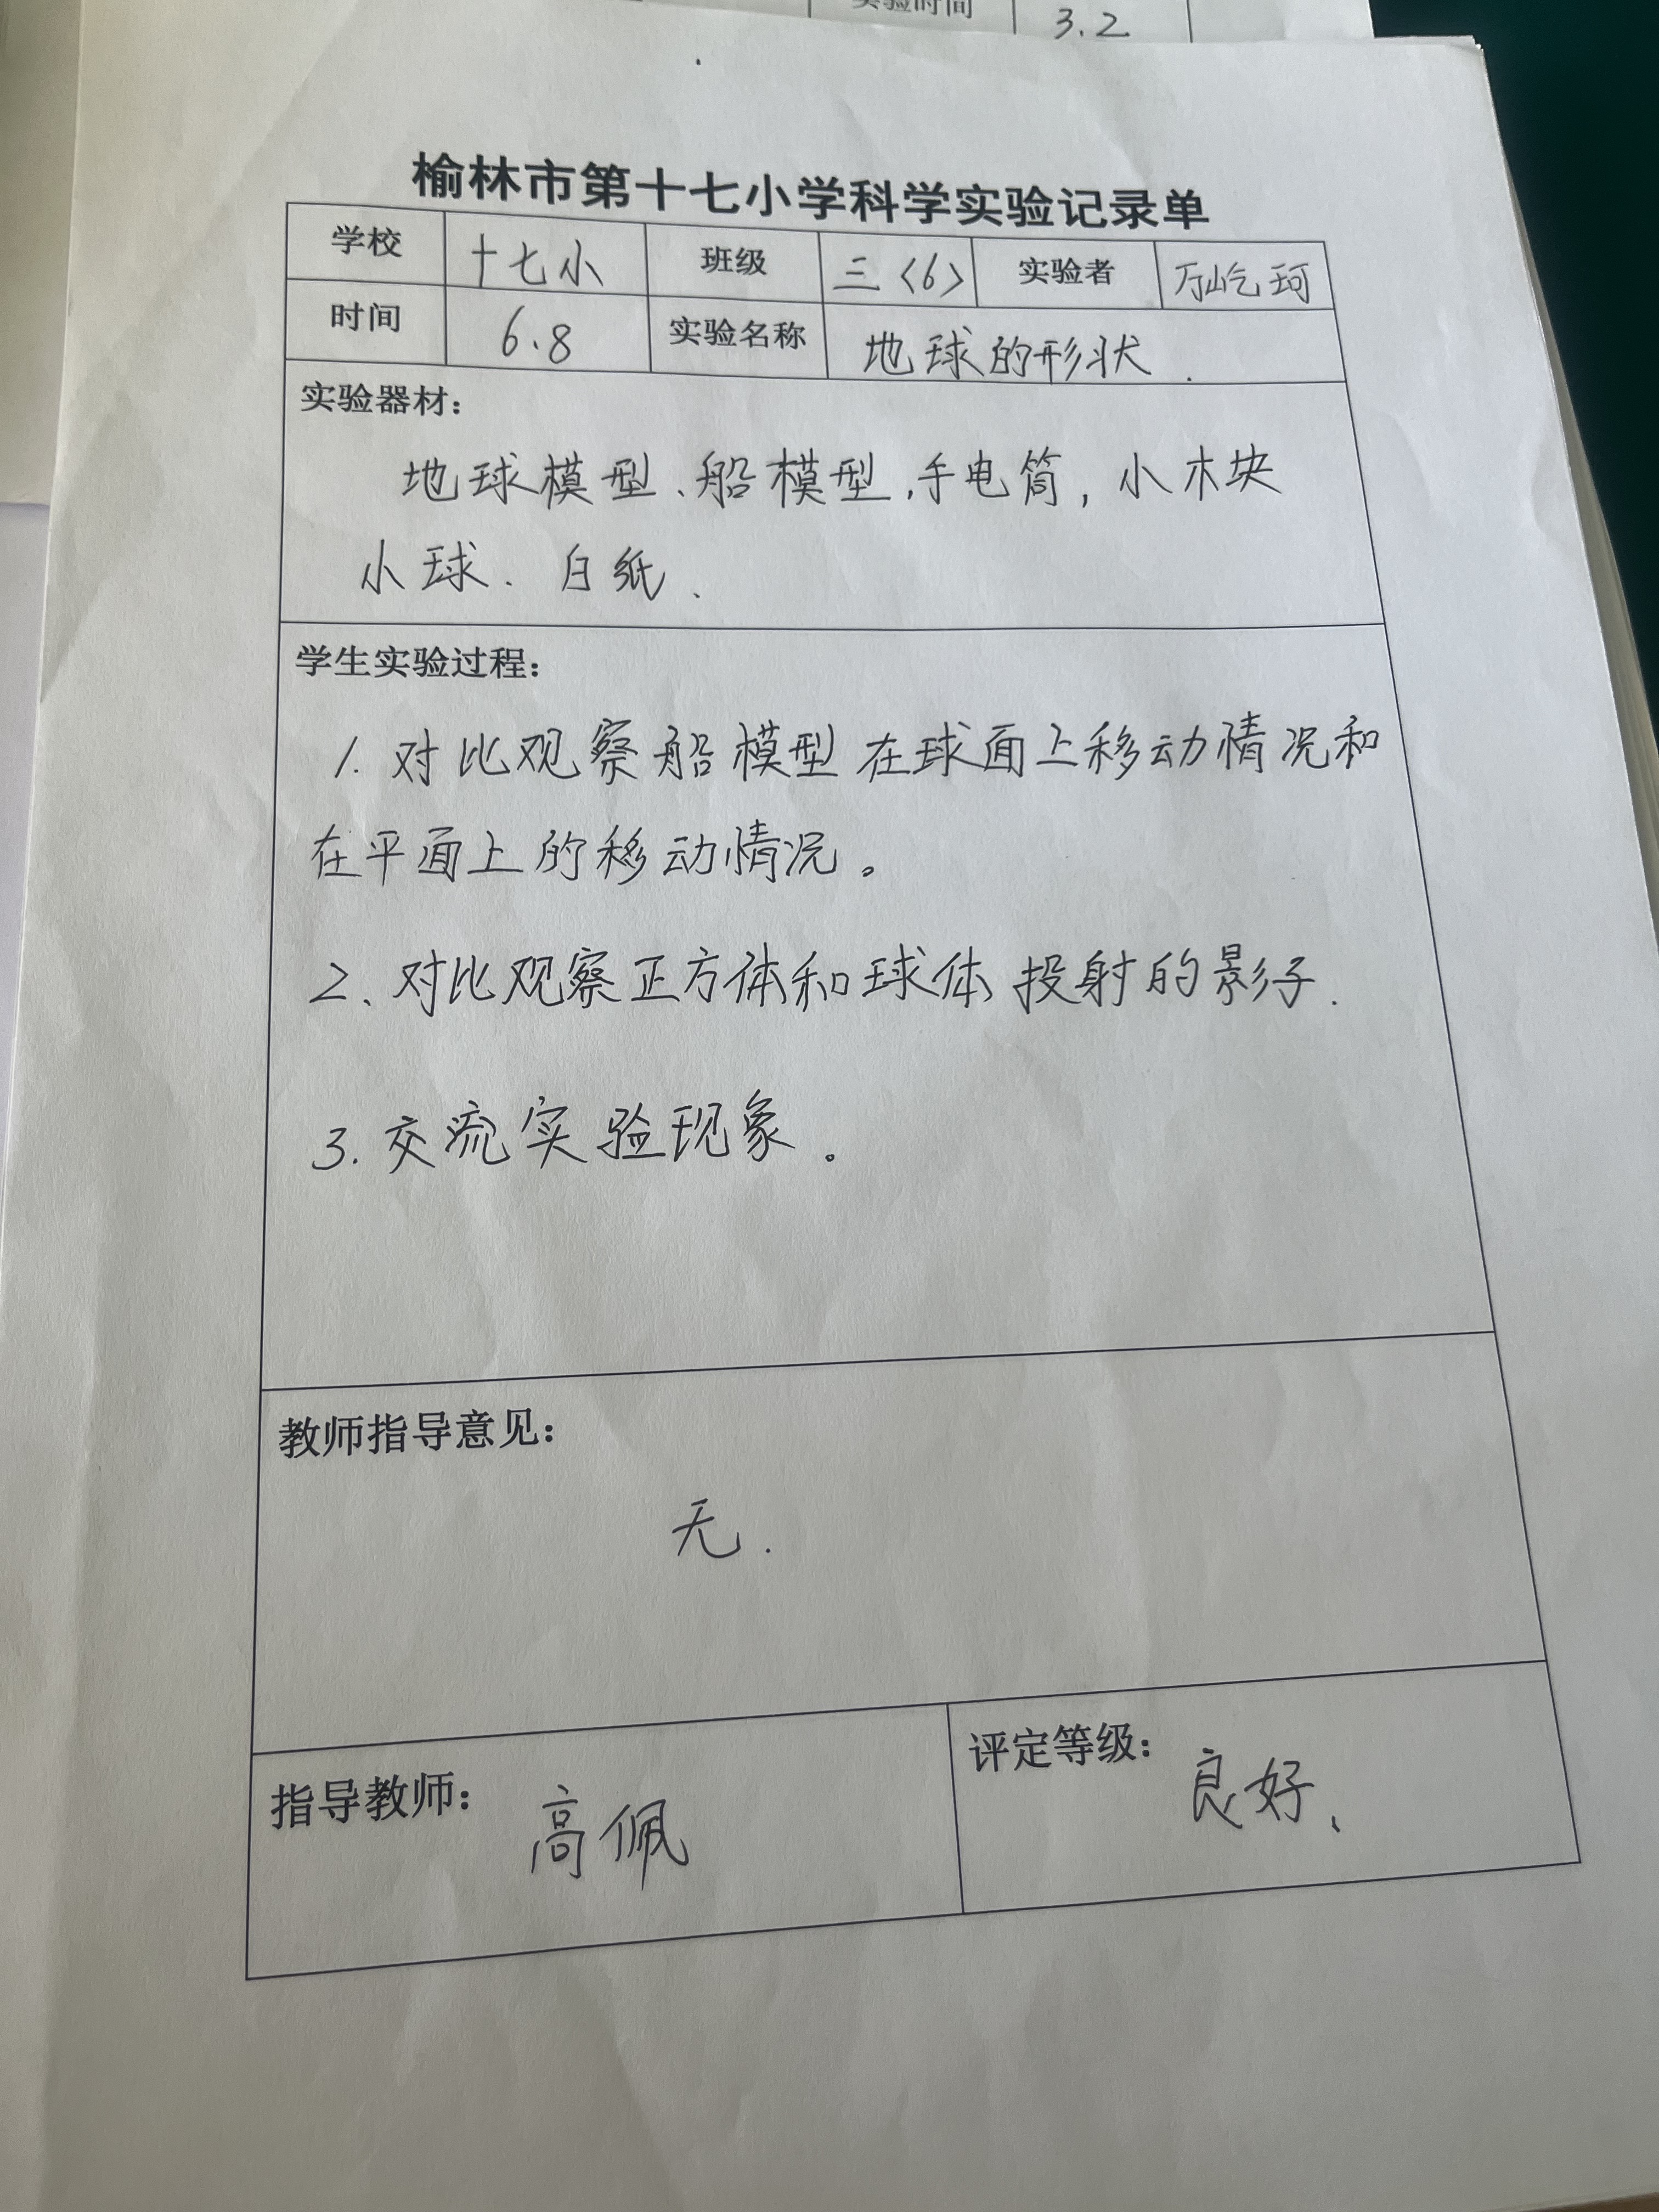 实验时间 3.2
榆林市第十七小学科学实验记录单
学校 十七小 班级 三〈6〉 实验者 万屹珂
时间 6.8 实验名称 地球的形状.
实验器材：
地球模型、船模型,手电筒,小木块
小球.白纸.
学生实验过程：
1.对比观察船模型在球面上移动情况和
在平面上的移动情况。
2、对比观察正方体和球体投射的影子.
3.交流实验现象。
教师指导意见：
无.
指导教师：高佩
评定等级：良好、